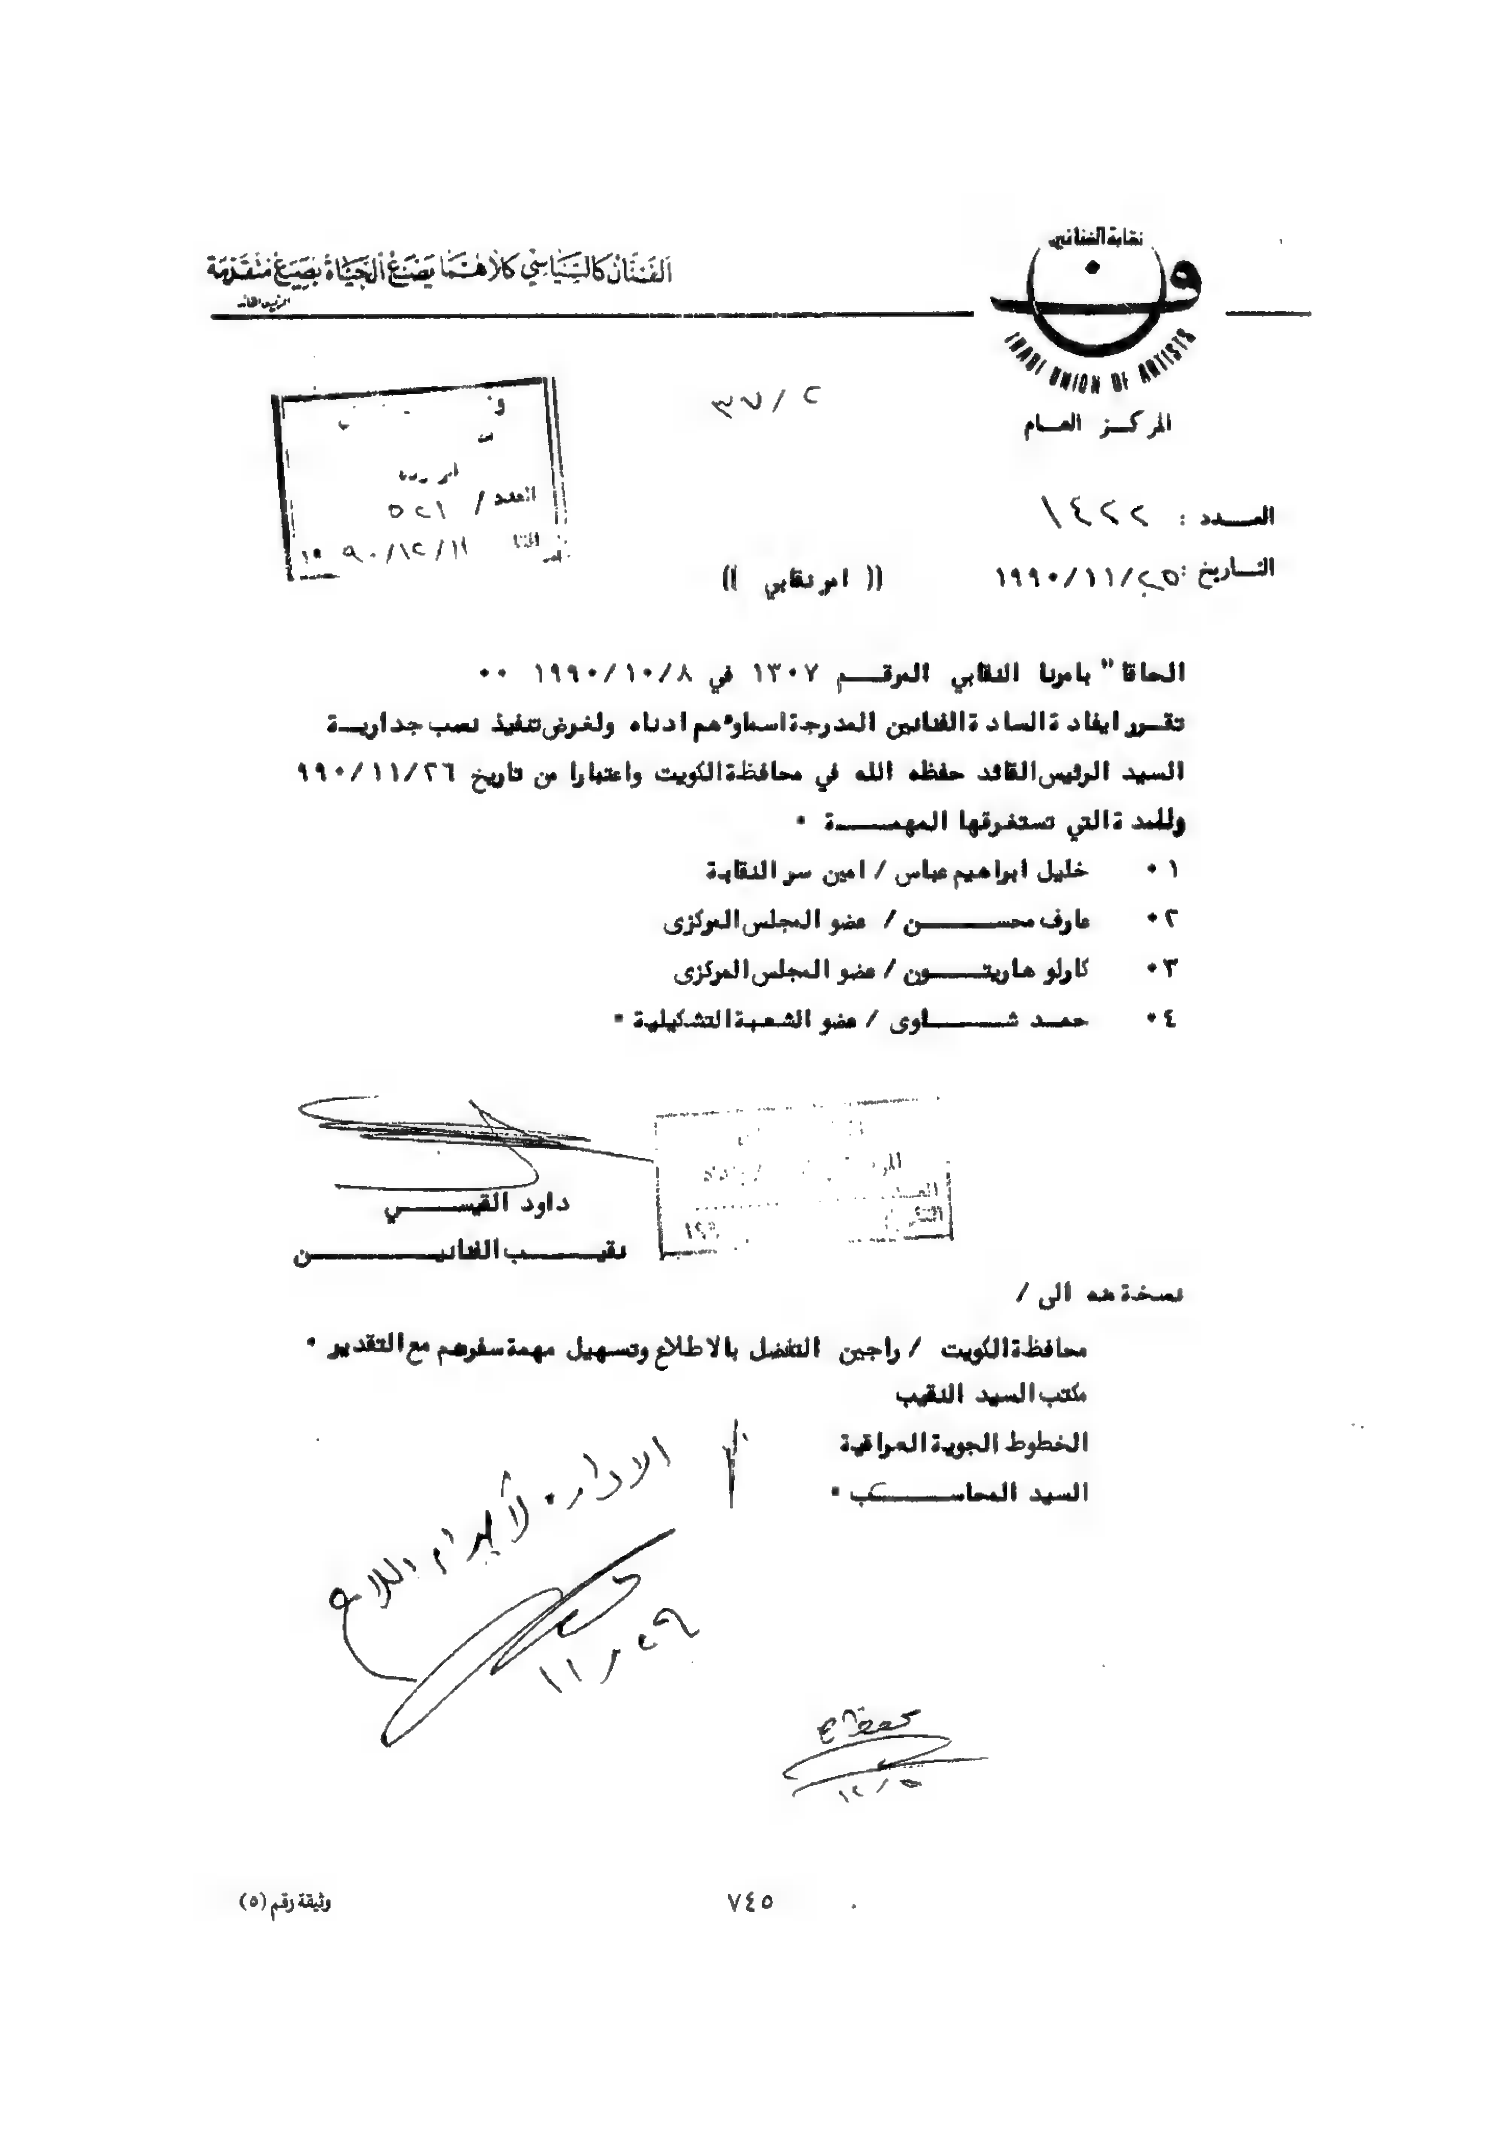 نقابة الفنانين
الفنان كالسياسي كلاهما يصنع الحياة بصيغ متقدمة
الرئيس القائد
IRAQI UNION OF ARTISTS
المركز العام
٣٧/٢
العدد / ٥٢١
١٩٩٠/١٢/١١
العدد : ١٤٢٢
التاريخ : ١٩٩٠/١١/٢٥
(( امر نقابي ))
الحاقا" بامرنا النقابي المرقم ١٣٠٧ في ١٩٩٠/١٠/٨ ٠٠
تقرر ايفاد ة الساد ة الفنانين المدرجة اسماؤهم ادناه ولغرض تنفيذ نصب جدارية
السيد الرئيس القائد حفظه الله في محافظة الكويت واعتبارا من تاريخ ٩٩٠/١١/٢٦
وللمد ة التي تستغرقها المهمة ٠
١ ٠ خليل ابراهيم عباس / امين سر النقابة
٢ ٠ عارف محسن / عضو المجلس المركزى
٣ ٠ كارلو هاريتون / عضو المجلس المركزى
٤ ٠ حمد شاوى / عضو الشعبة التشكيلية ٠
داود القيسي
نقيب الفنانين
نسخة منه الى /
محافظة الكويت / راجين التفضل بالاطلاع وتسهيل مهمة سفرهم مع التقدير ٠
مكتب السيد النقيب
الخطوط الجوية العراقية
السيد المحاسب ٠
١١/٢٩
١٢/٥
٧٤٥
وثيقة رقم (٥)